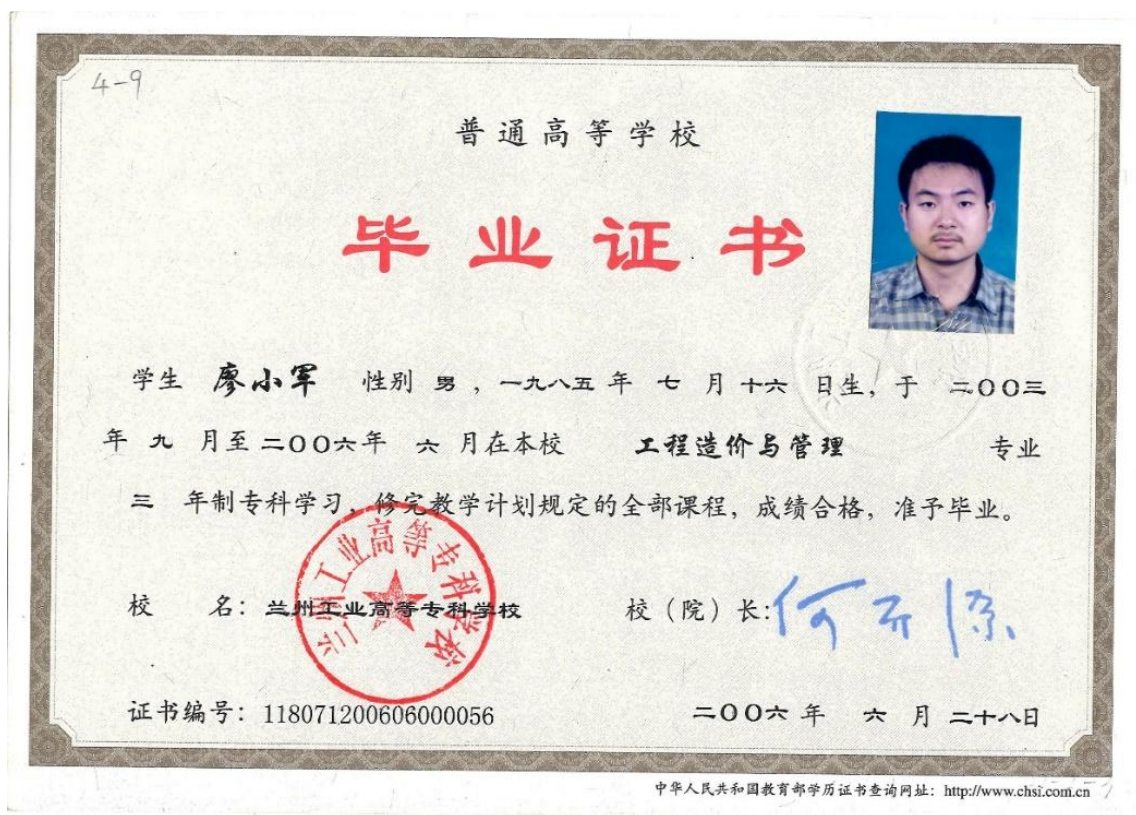 4-9
普通高等学校
毕业证书
学生 廖小军 性别 男，一九八五年 七 月十六 日生，于 二〇〇三
年 九 月至二〇〇六年 六 月在本校 工程造价与管理 专业
三 年制专科学习，修完教学计划规定的全部课程，成绩合格，准予毕业。
兰州工业高等专科学校
校 名：兰州工业高等专科学校 校（院）长：
证书编号：118071200606000056 二〇〇六 年 六 月 二十八日
中华人民共和国教育部学历证书查询网址：http://www.chsi.com.cn